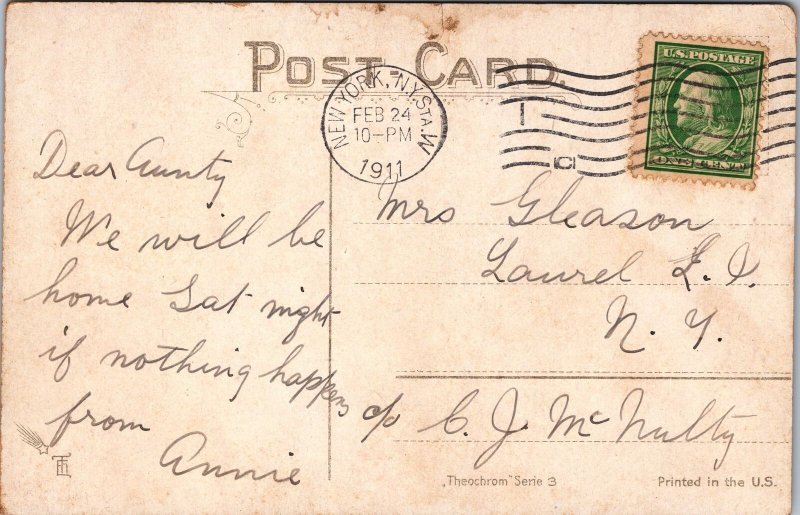 POST CARD.
NEW YORK, N.Y. STA W
FEB 24
10-PM
1911
U.S. POSTAGE
ONE CENT
Dear Aunty
We will be
home Sat night
if nothing happens
from
Annie
Mrs Gleason
Laurel L. I.
N. Y.
c/o C. J. McNulty
„Theochrom" Serie 3
Printed in the U.S.